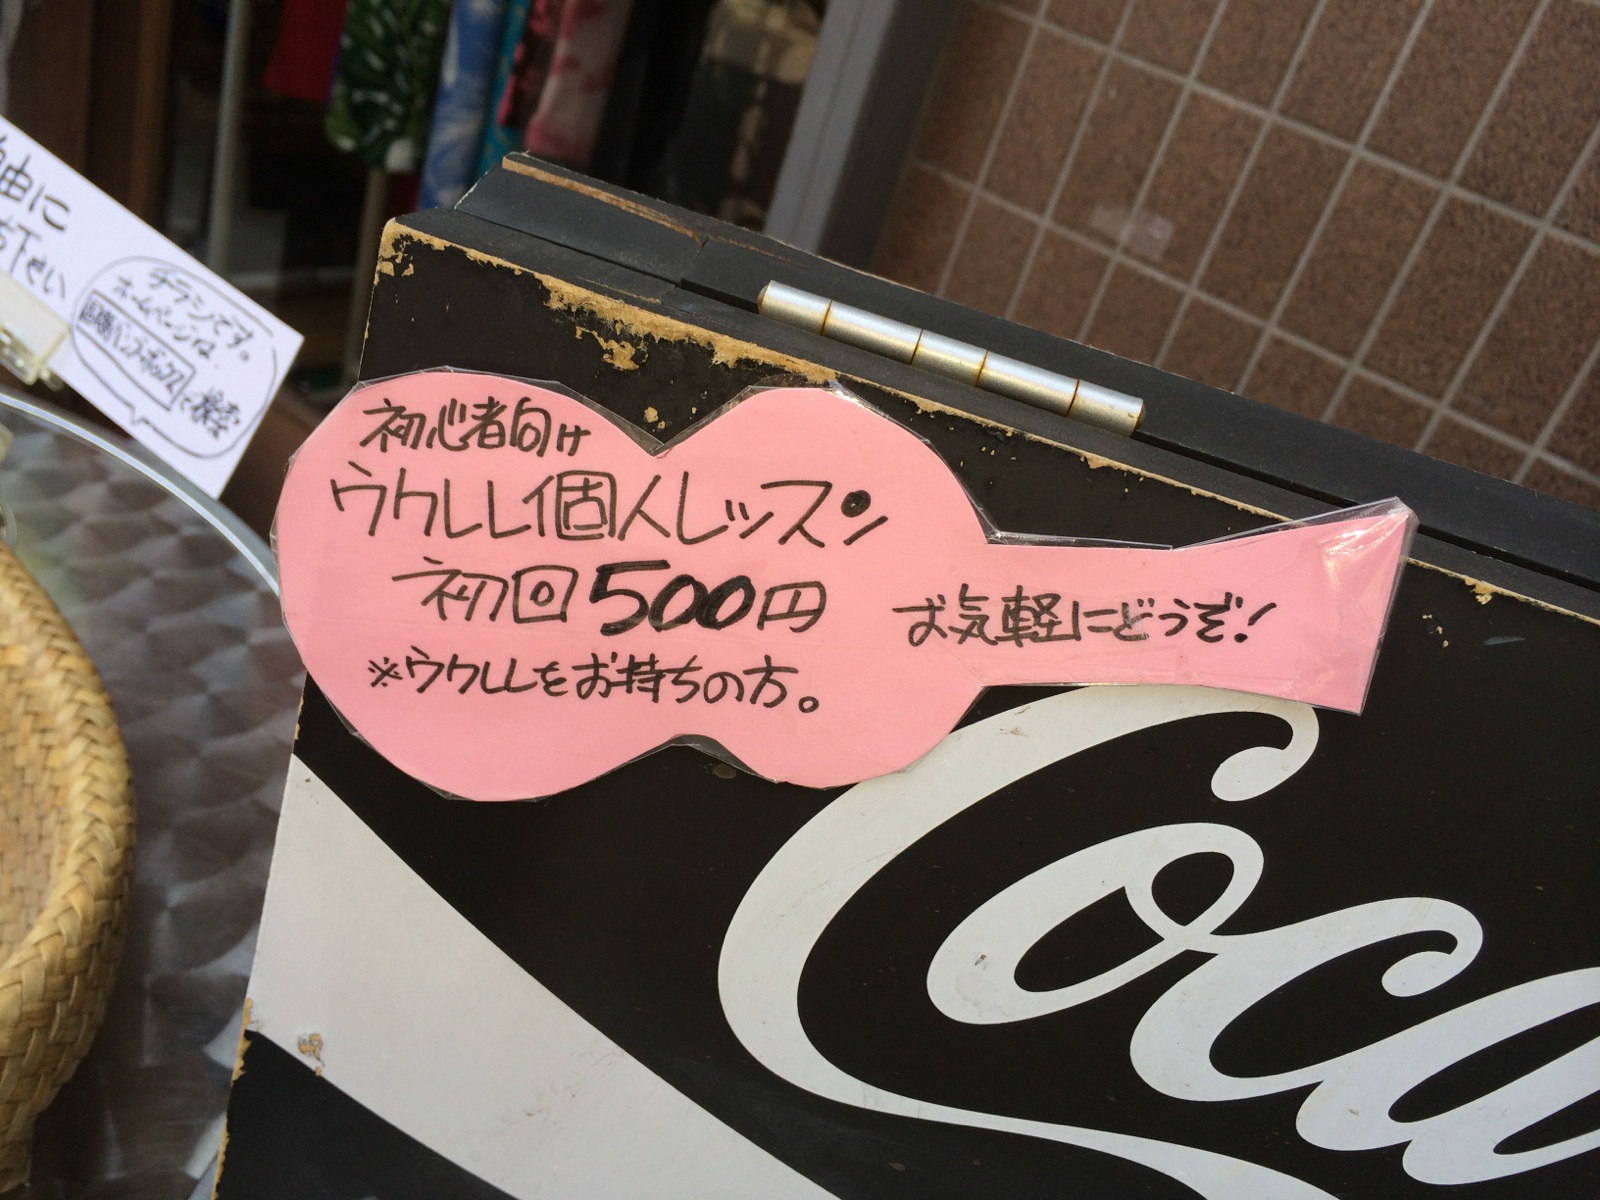 初心者向け
ウクレレ個人レッスン
初回500円
※ウクレレをお持ちの方。
お気軽にどうぞ!
由に
下さい
チラシです。
ホームページは
で検索
Coca